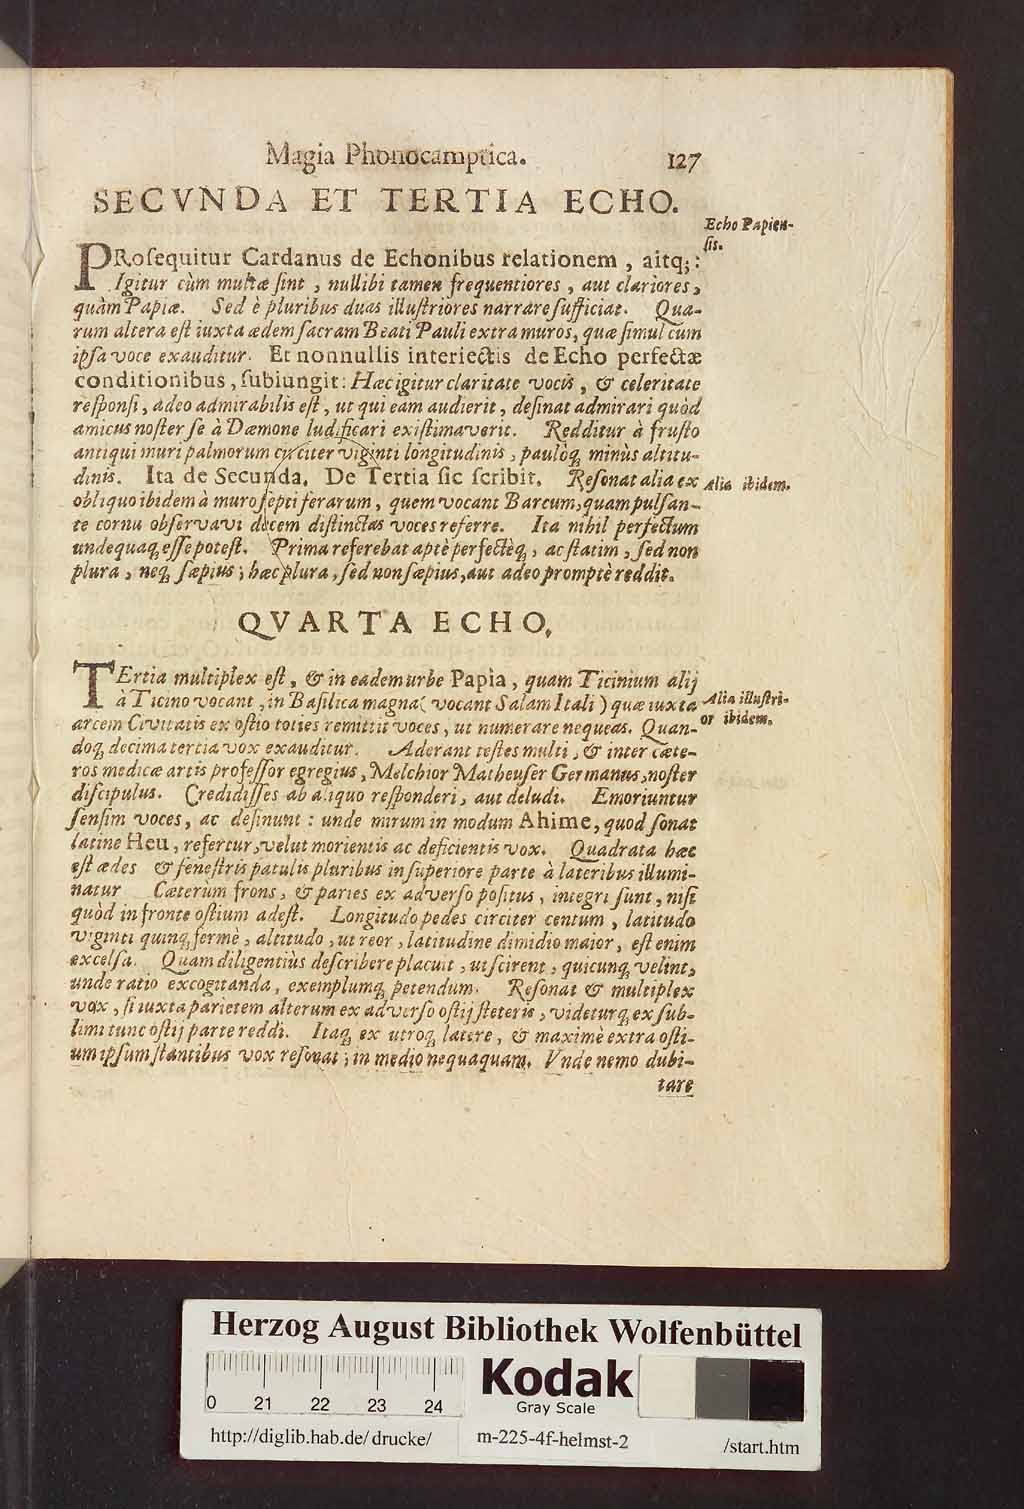 Magia Phonocamptica. 127
SECVNDA ET TERTIA ECHO.
Echo Papien-
ſis.
PRoſequitur Cardanus de Echonibus relationem, aitq;:
Igitur cùm multæ ſint, nullibi tamen frequentiores, aut clariores,
quàm Papiæ. Sed è pluribus duas illuſtriores narrare ſufficiat. Qua-
rum altera eſt iuxta ædem ſacram Beati Pauli extra muros, quæ ſimul cum
ipſa voce exauditur. Et nonnullis interiectis de Echo perfectæ
conditionibus, ſubiungit: Hæc igitur claritate vocis, & celeritate
reſponſi, adeo admirabilis eſt, ut qui eam audierit, deſinat admirari quòd
amicus noſter ſe à Dæmone ludificari exiſtimaverit. Redditur à fruſto
antiqui muri palmorum circiter viginti longitudinis, paulòq; minùs altitu-
dinis. Ita de Secunda. De Tertia ſic ſcribit. Reſonat alia ex
Alia ibidem.
obliquo ibidem à muro ſepti ferarum, quem vocant Barcum, quam pulſan-
te cornu obſervavi decem diſtinctas voces referre. Ita nihil perfectum
undequaq; eſſe poteſt. Prima referebat aptè perfectèq;, ac ſtatim, ſed non
plura, neq; ſæpius; hæc plura, ſed non ſæpius, aut adeo promptè reddit.
QVARTA ECHO,
TErtia multiplex eſt, & in eadem urbe Papia, quam Ticinium alij
à Ticino vocant, in Baſilica magna (vocant Salam Itali) quæ iuxta
Alia illuſtri-
or ibidem.
arcem Civitatis ex oſtio toties remittit voces, ut numerare nequeas. Quan-
doq; decima tertia vox exauditur. Aderant teſtes multi, & inter cæte-
ros medicæ artis profeſſor egregius, Melchior Matheuſer Germanus, noſter
diſcipulus. Credidiſſes ab aliquo reſponderi, aut deludi. Emoriuntur
ſenſim voces, ac deſinunt: unde mirum in modum Ahime, quod ſonat
latine Heu, refertur, velut morientis ac deficientis vox. Quadrata hæc
eſt ædes & feneſtris patulis pluribus in ſuperiore parte à lateribus illumi-
natur Cæterùm frons, & paries ex adverſo poſitus, integri ſunt, niſi
quòd in fronte oſtium adeſt. Longitudo pedes circiter centum, latitudo
viginti quinq; fermè, altitudo, ut reor, latitudine dimidio maior, eſt enim
excelſa. Quam diligentiùs deſcribere placuit, ut ſcirent, quicunq; velint,
unde ratio excogitanda, exemplumq; petendum. Reſonat & multiplex
vox, ſi iuxta parietem alterum ex adverſo oſtij ſteteris, videturq; ex ſub-
limi tunc oſtij parte reddi. Itaq; ex utroq; latere, & maximè extra oſti-
um ipſum ſtantibus vox reſonat; in medio nequaquam. Vnde nemo dubi-
tare
Herzog August Bibliothek Wolfenbüttel
0 21 22 23 24
Kodak
Gray Scale
http://diglib.hab.de/drucke/ m-225-4f-helmst-2 /start.htm